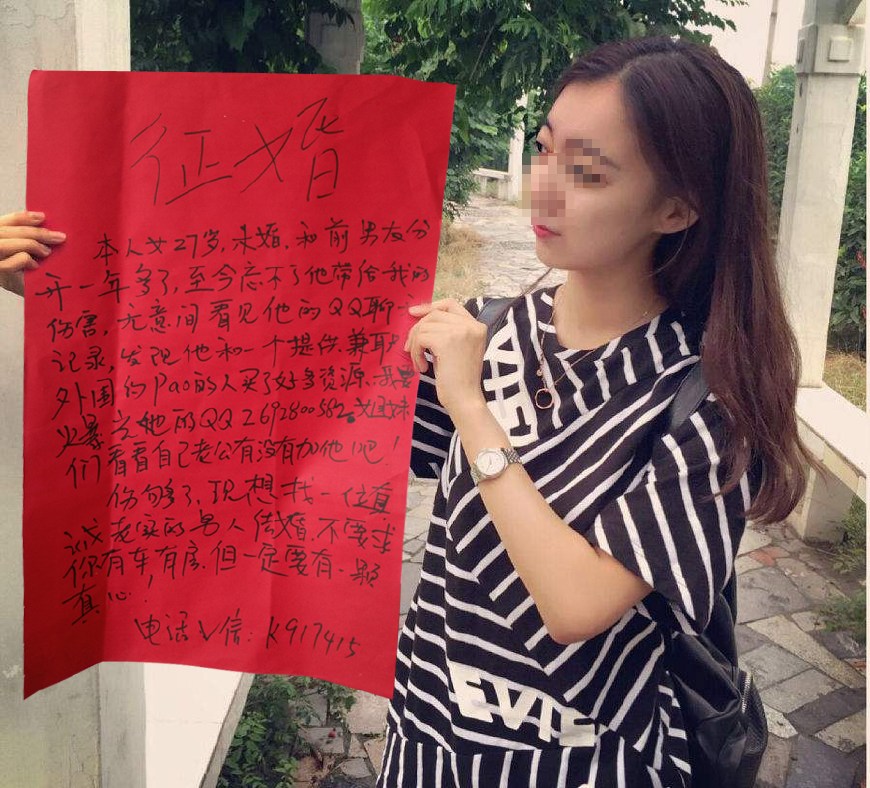 征婚
本人女27岁,未婚,和前男友分
开一年多了,至今忘不了他带给我的
伤害,无意间看见他的QQ聊
记录,发现他和一个提供兼职
外围的pao的人买了好多资源
火暴光她的QQ2692800582。姐妹
们看看自己老公有没有加他吧!
伤够了,现想找一位真
诚老实的男人结婚,不要求
你有车有房,但一定要有一颗
真心!
电话V信:K917415
EVIE